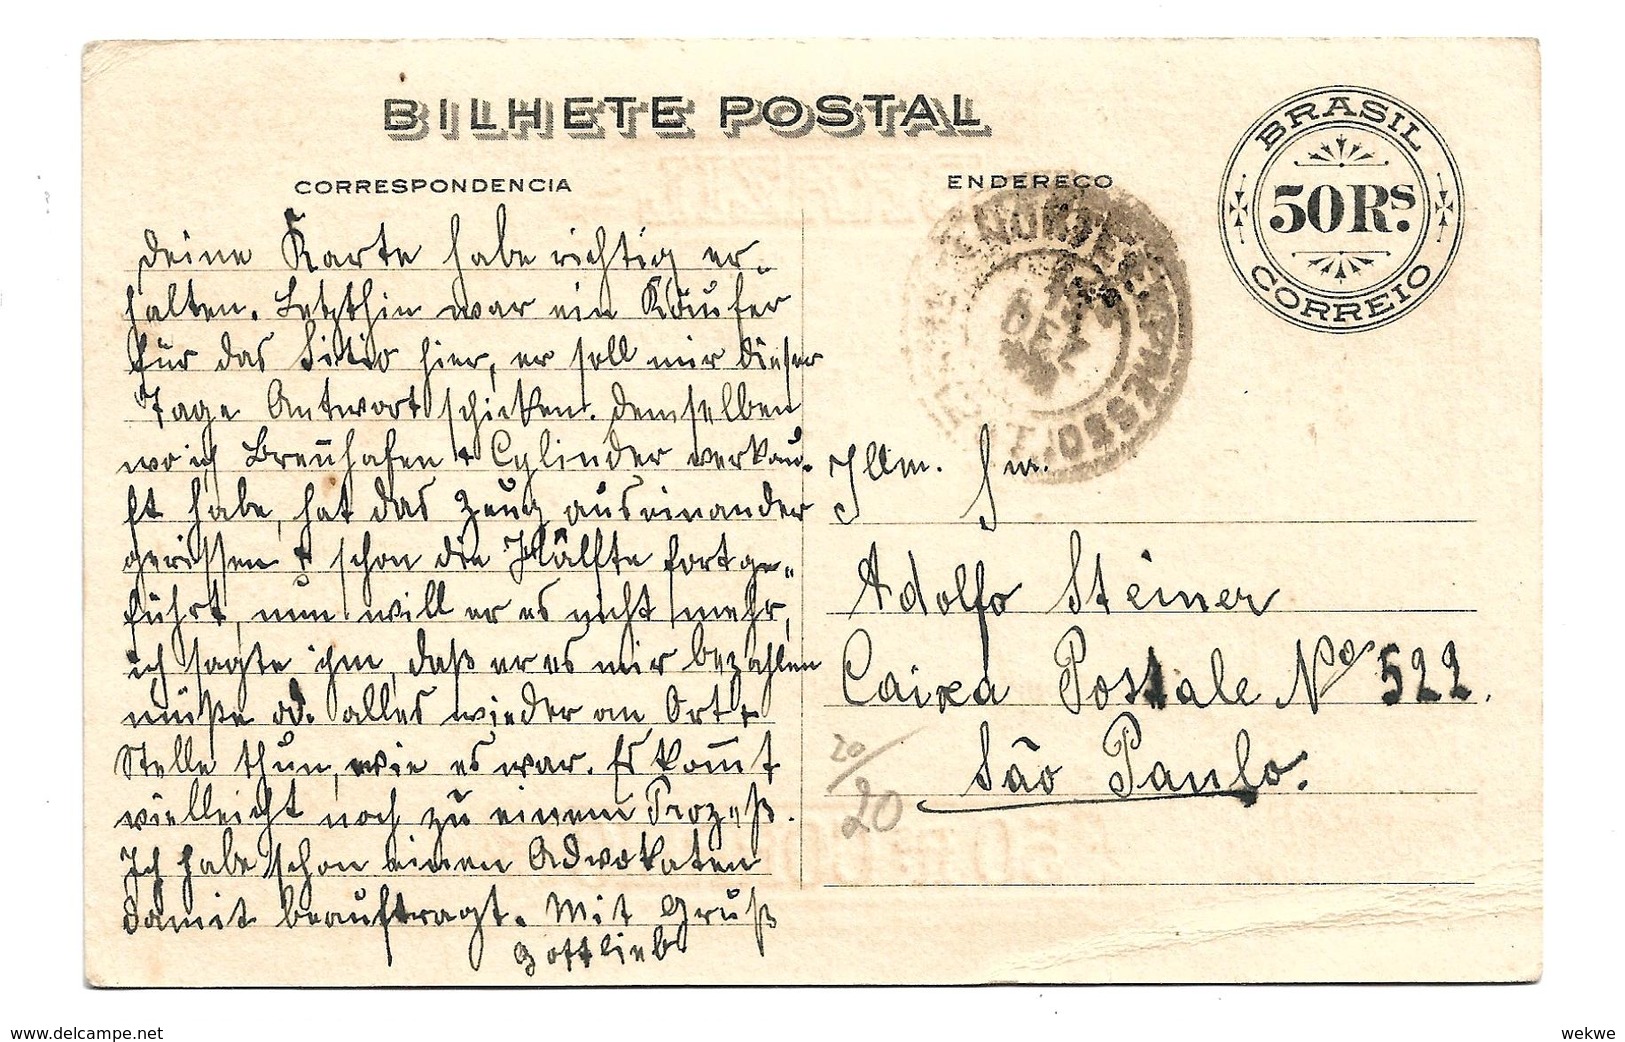 BILHETE POSTAL
CORRESPONDENCIA
ENDERECO
BRASIL
50 Rs.
CORREIO
Deine Karte habe richtig er-
halten. Letzthin war ein Käufer
für das Sitio hier, er soll mir dieser
Tage Antwort schicken. Demselben
wo ich Brennhafen & Cylinder verkau-
ft habe, hat das Zeug auseinander
gerissen & schon die Hälfte fortge-
führt, nun will er es nicht mehr,
ich sagte ihm, daß er es mir bezahlen
müße od. alles wieder an Ort &
Stelle thun, wie es war. Es kom̄t
vielleicht noch zu einem Prozeß.
Ich habe schon einen Advokaten
damit beauftragt. Mit Gruß
Gottlieb
Illm. Snr.
Adolfo Steiner
Caixa Postale No 522.
São Paulo.
20/20
DEZ
wekwe
© delcampe.net